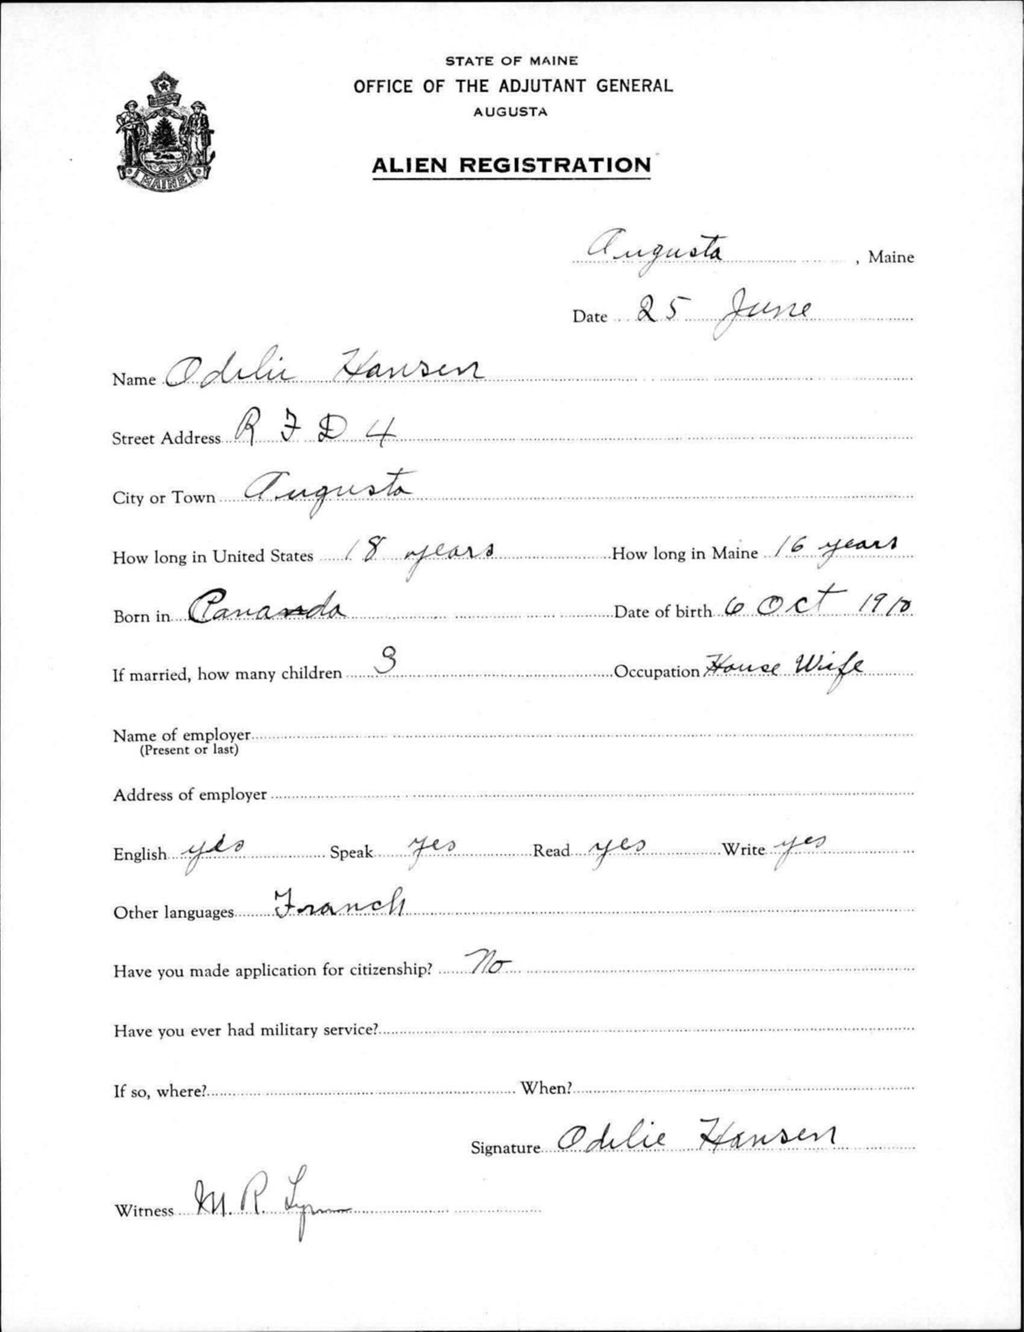 STATE OF MAINE
OFFICE OF THE ADJUTANT GENERAL
AUGUSTA
ALIEN REGISTRATION
MAINE
Augusta, Maine
Date 25 June
Name Odelie Hansen
Street Address R F D 4
City or Town Augusta
How long in United States 18 years How long in Maine 16 years
Born in Cananda Date of birth 6 Oct 1910
If married, how many children 3 Occupation House Wife
Name of employer
(Present or last)
Address of employer
English yes Speak yes Read yes Write yes
Other languages Franch
Have you made application for citizenship? No
Have you ever had military service?
If so, where? When?
Signature Odelie Hansen
Witness M. R.